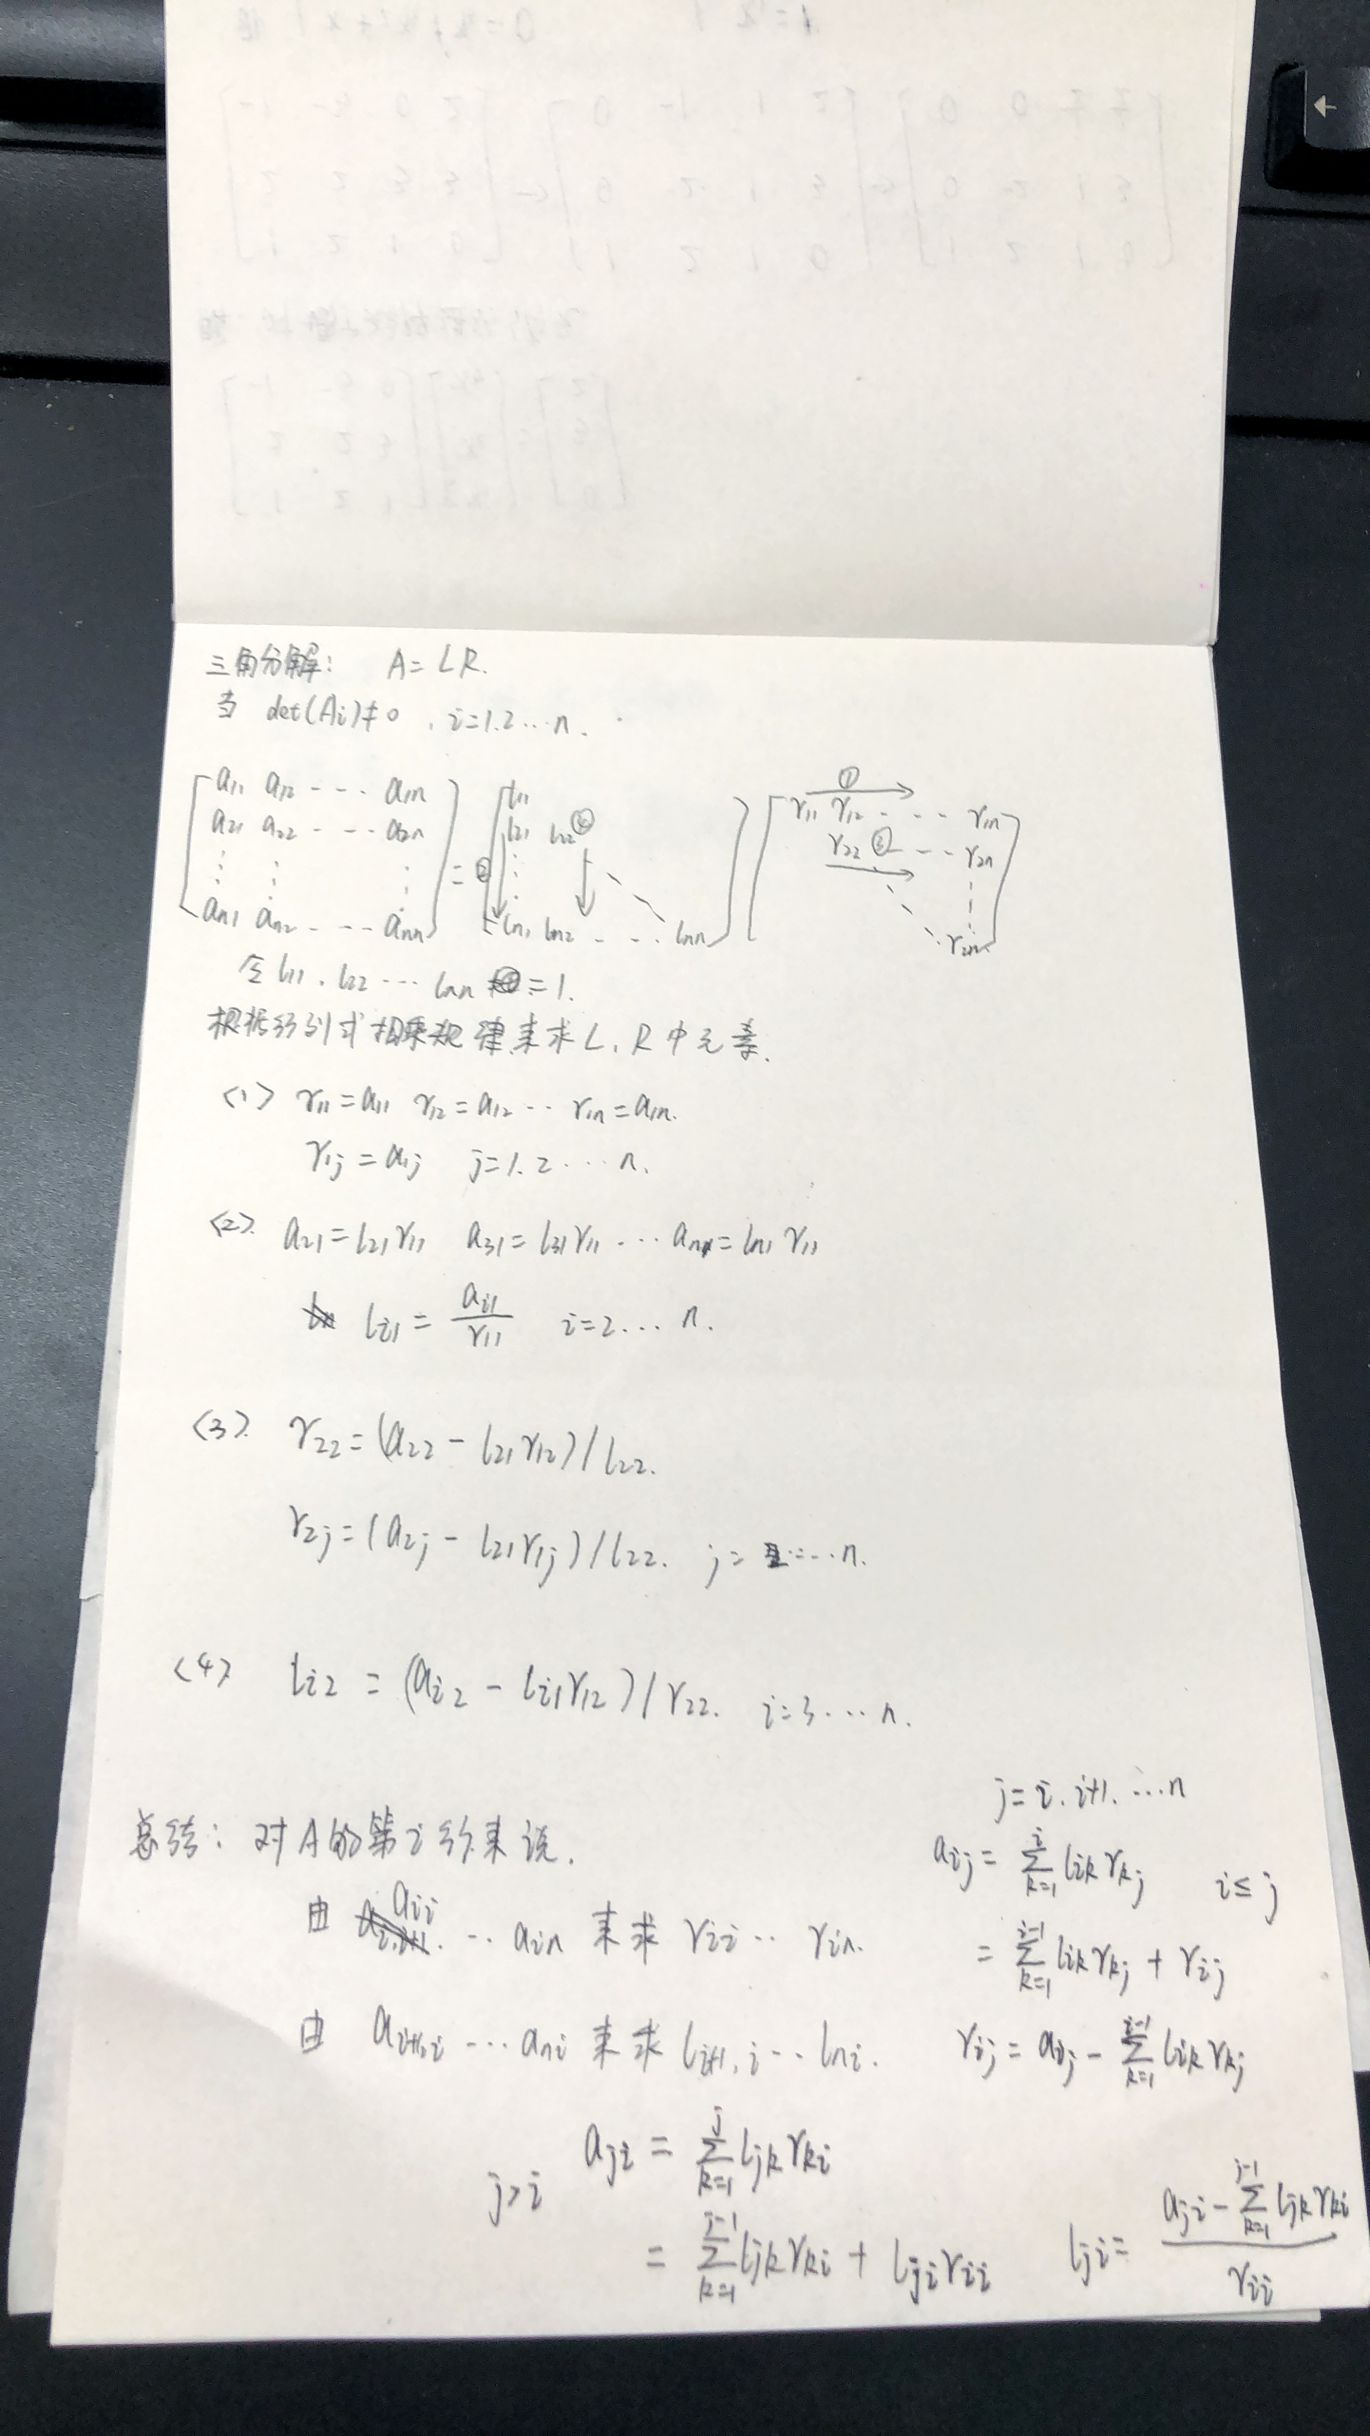 三角分解: A=LR.
当 det(Ai)≠0, i=1.2…n.
[a11 a12 --- a1n
a21 a22 --- a2n
⋮ ⋮ ⋮
an1 an2 --- ann]
= ②
[l11
l21 l22 ④
⋮
ln1 ln2 --- lnn]
①
[r11 r12 --- r1n
r22 ③ --- r2n
rnn]
令 l11, l22 … lnn =1.
根据行列式相乘规律来求L,R中元素.
(1) r11=a11 r12=a12 … r1n=a1n.
r1j=a1j j=1.2…n.
(2). a21=l21r11 a31=l31r11 … an1=ln1r11
li1 = ai1/r11 i=2…n.
(3). r22=(a22-l21r12)/l22.
r2j=(a2j-l21r1j)/l22. j=2…n.
(4) li2=(ai2-li1r12)/r22. i=3…n.
总结: 对A的第i行来说.
由 aii … ain 来求 rii … rin.
由 ai+1,i … ani 来求 li+1,i … lni.
j=i.i+1.…n
aij = ∑_{k=1}^{i} lik rkj i≤j
= ∑_{k=1}^{i-1} lik rkj + rij
rij = aij - ∑_{k=1}^{i-1} lik rkj
j>i aji = ∑_{k=1}^{j} ljk rki
= ∑_{k=1}^{j-1} ljk rki + lji rii
lji = (aji - ∑_{k=1}^{j-1} ljk rki)/rii